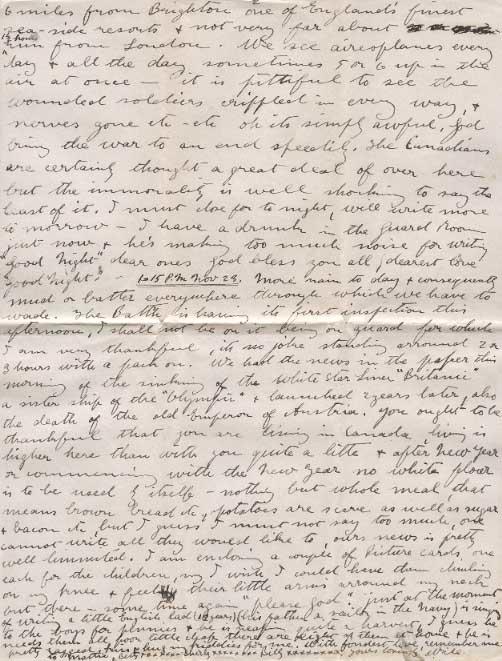 6 miles from Brighton one of England's finest
sea-side resorts & not very far about
run from London. We see aireoplanes every
day & all the day, sometimes 5 or 6 up in the
air at once — it is pittiful to see the
wounded soldiers, crippled in every way, &
nerves gone etc - etc oh its simply awful, God
bring the war to an end speedily. The Canadians
are certainly thought a great deal of over here
but the immorality is well shocking to say the
least of it. I must close for to night, will write more
to morrow — I have a drunk in the Guard Room
just now & he's making too much noise for writing
"good night" dear ones God bless you all, dearest love
Good Night? — 1215 P.M. Nov 23. More rain to day & consequently
mud or batter everywhere through which we have to
wade. The Battn is having its first inspection this
afternoon, I shall not be on it being on guard for which
I am very thankful, its no joke standing arround 2 or
3 hours with a pack on. We had the news in the paper this
morning of the sinking of the White Star Liner "Britanic"
a sister ship of the "Olympic" & launched 2 years later, also
the death of the old Emperor of Austria. You ought to be
thankful that you are living in Canada, living is
higher here than with you quite a little & after New Year
or commencing with the New Year no white flour
is to be used by itself — nothing but whole meal that
means brown bread etc, potatoes are scarce as well as sugar
& bacon etc, but I guess I must not say too much, one
cannot write all they would like to, ours news is pretty
well limited. I am enclosing a couple of picture cards one
each for the children, my I wish I could have them climbing
on my knee & feel their little arms arround my neck
but there — some time again "please God" just at the moment
of writing a little English lad (his father a sailor in the Navy) is singing
to the boys for pennies & reaping quite a harvest, I guess he
needs them all poor little chap there are eight of them at home & he is
pretty ragged, for me. With fondest love, remember me
to your loving